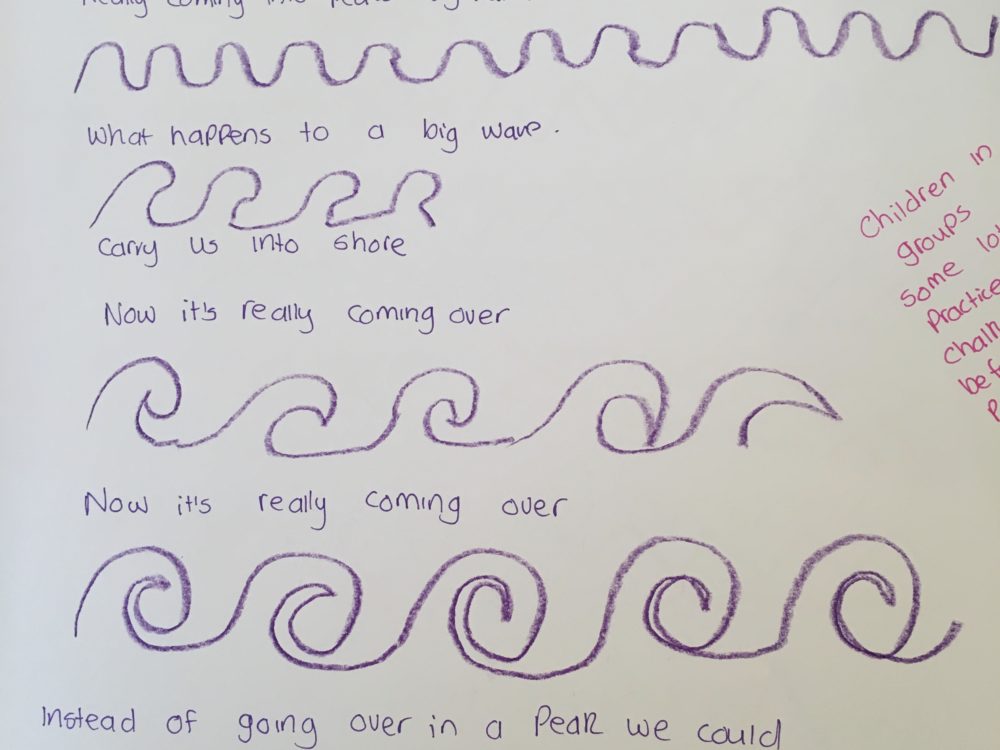 Really coming into
What happens to a big wave.
Carry us into shore
Now it's really coming over
Now it's really coming over
Instead of going over in a Peak we could
Children in
groups
Some
Practice